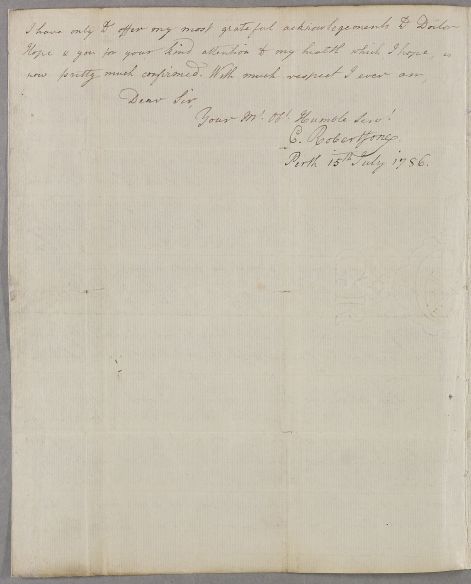 I have only to offer my most grateful acknowlegements to Doctor
Hope & you for your kind attention to my health which I hope, is
now pretty much confirmed. With much respect I ever am,
Dear Sir,
Your Mt. Obt. Humble Servt.
C. Robertson
Perth 15th July 1786.